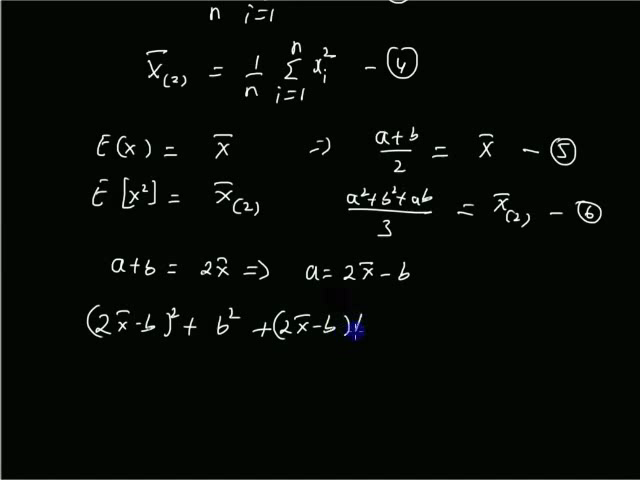 n i=1
x̄₍₂₎ = 1/n Σ_{i=1}^{n} xᵢ² – ④
E(x) = x̄ ⇒ (a+b)/2 = x̄ – ⑤
E[x²] = x̄₍₂₎ (a²+b²+ab)/3 = x̄₍₂₎ – ⑥
a+b = 2x̄ ⇒ a = 2x̄ – b
(2x̄-b)² + b² + (2x̄-b)